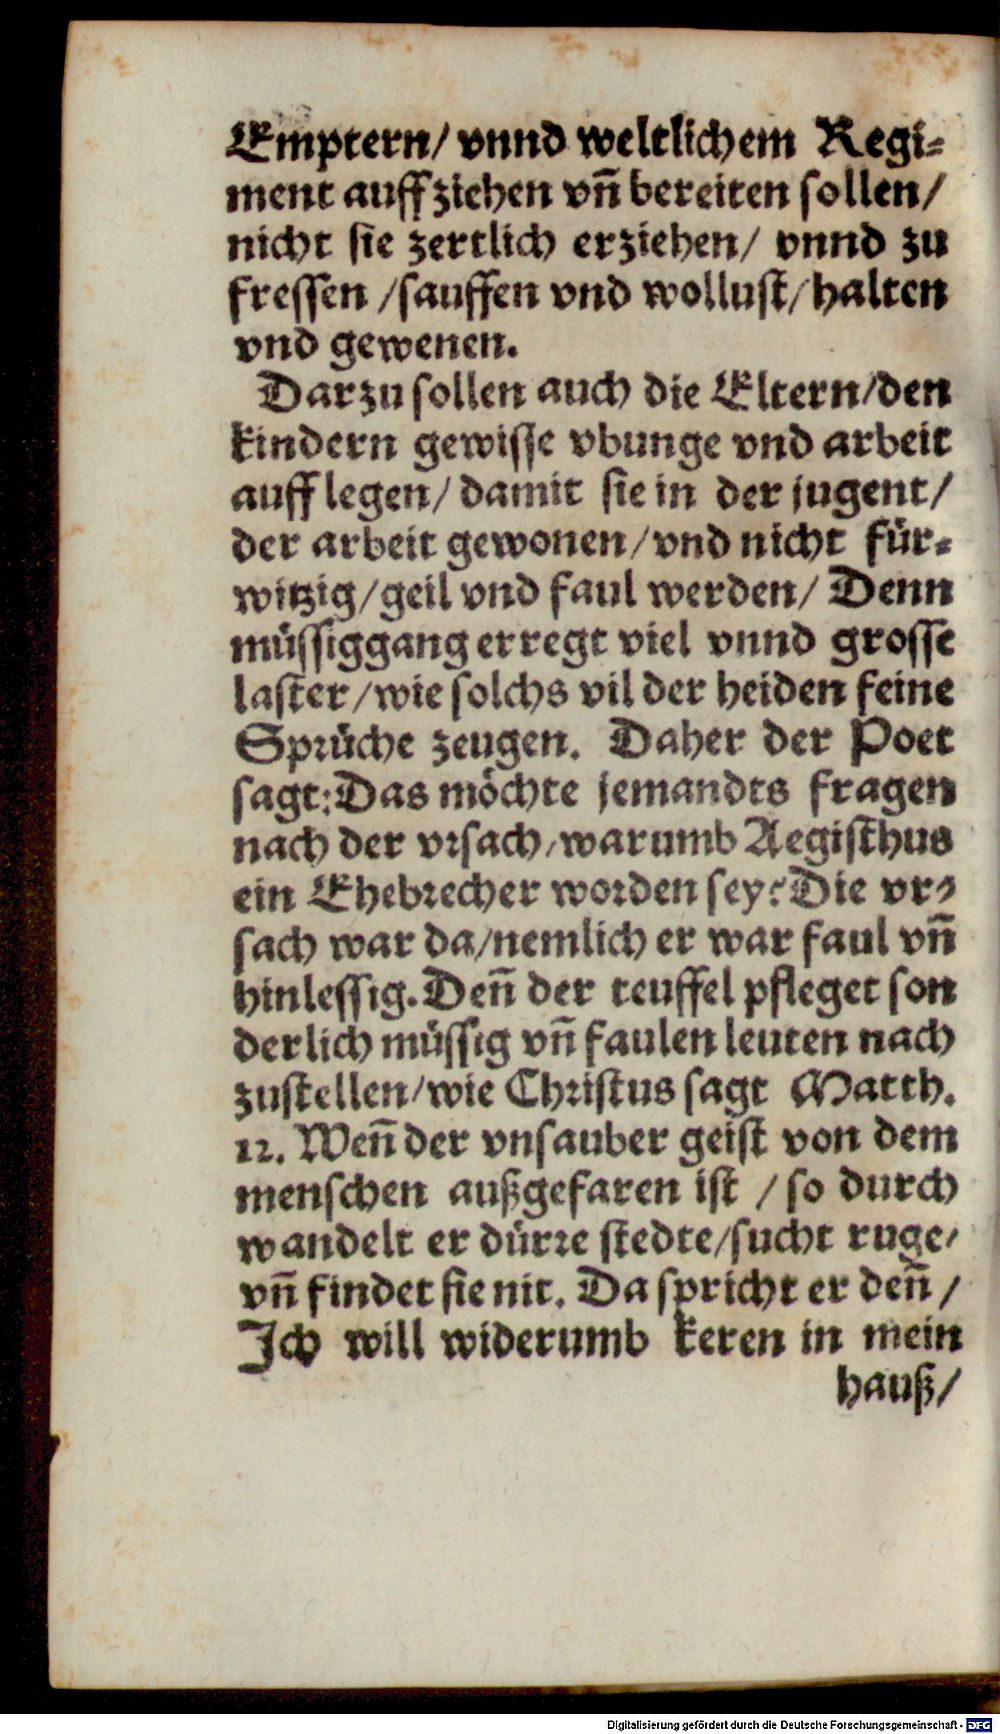 Emptern/ vnnd weltlichem Regi⸗
ment auffziehen vn̄ bereiten sollen/
nicht sie zertlich erziehen/ vnnd zu
fressen /sauffen vnd wollust/halten
vnd gewenen.
Darzu sollen auch die Eltern/den
kindern gewisse vbunge vnd arbeit
aufflegen/ damit sie in der jugent/
der arbeit gewonen/vnd nicht für⸗
witzig/geil vnd faul werden/ Denn
müssiggang erregt viel vnnd grosse
laster/wie solchs vil der heiden feine
Sprüche zeugen. Daher der Poet
sagt:Das möchte jemandts fragen
nach der vrsach/warumb Aegisthus
ein Ehebrecher worden sey? Die vr⸗
sach war da/nemlich er war faul vn̄
hinlessig.Den̄ der teuffel pfleget son
derlich müssig vn̄ faulen leuten nach
zustellen/wie Christus sagt Matth.
12. Wen̄ der vnsauber geist von dem
menschen außgefaren ist /so durch
wandelt er dürre stedte/sucht ruge/
vn̄ findet sie nit. Da spricht er den̄ /
Ich will widerumb keren in mein
hauß/
Digitalisierung gefördert durch die Deutsche Forschungsgemeinschaft - DFG